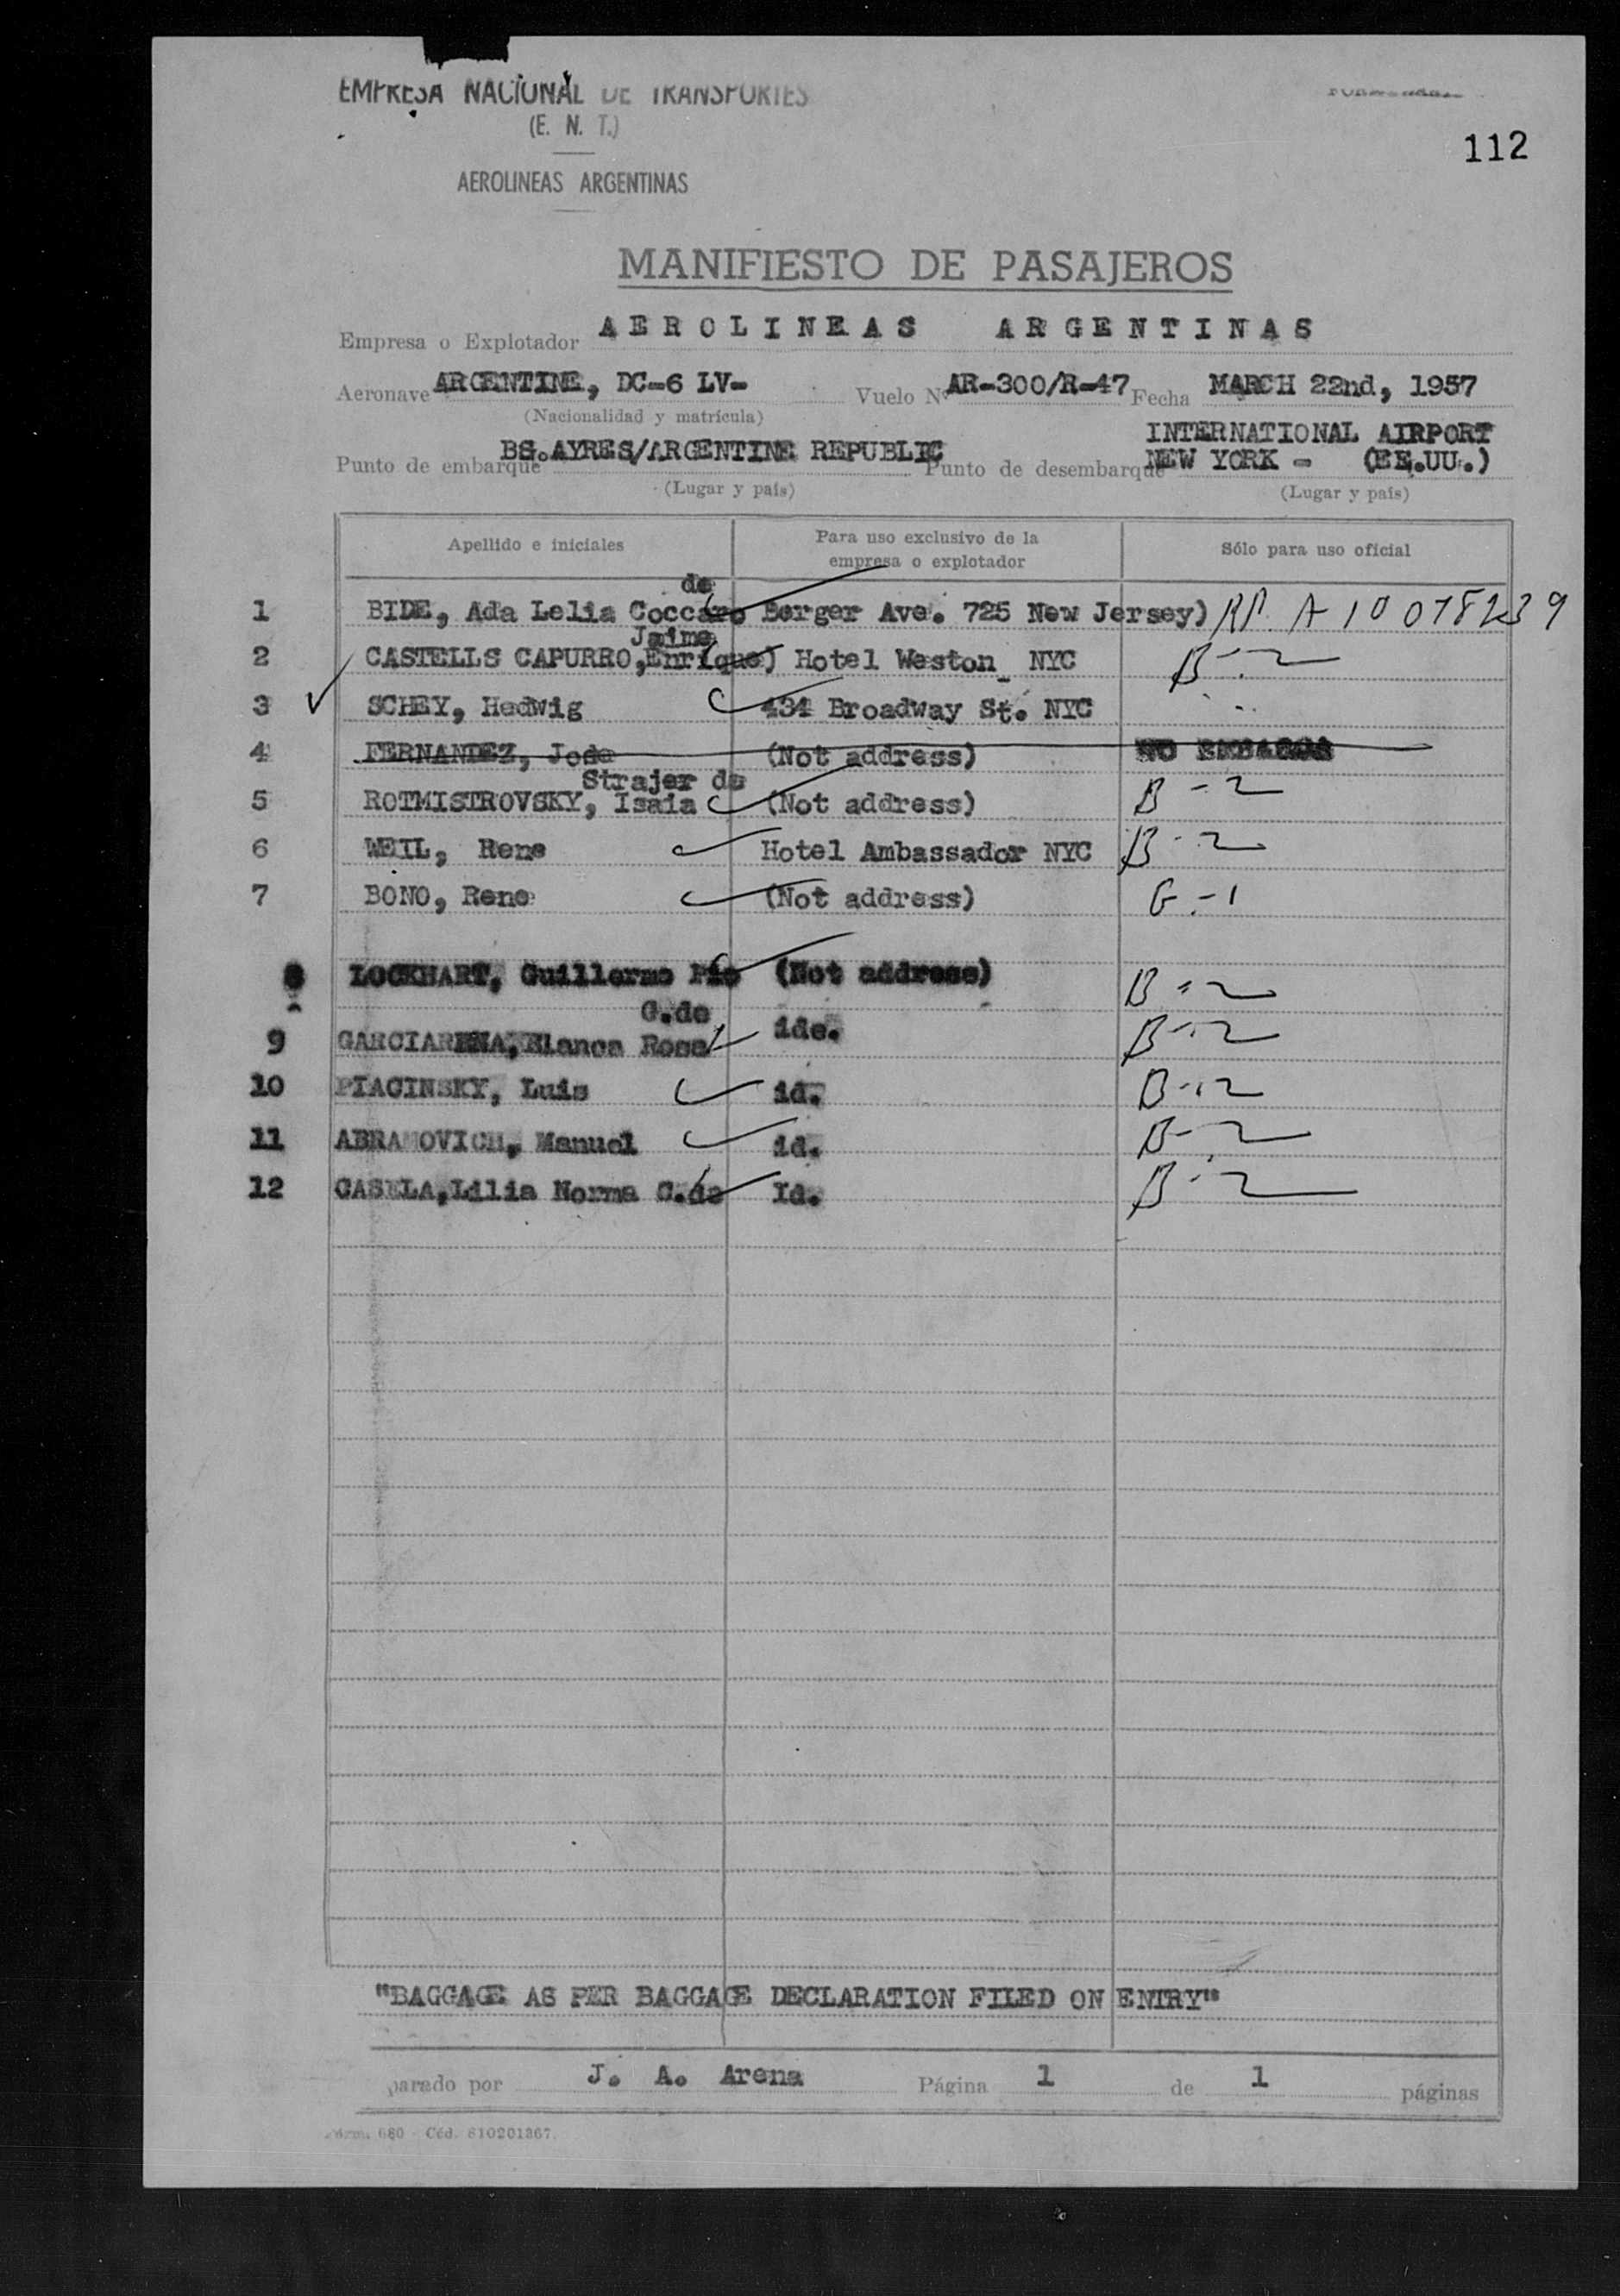 EMPRESA NACIONAL DE TRANSPORTES
(E. N. T.)
112
AEROLINEAS ARGENTINAS
MANIFIESTO DE PASAJEROS
Empresa o Explotador AEROLINEAS ARGENTINAS
Aeronave ARGENTINE, DC-6 LV- Vuelo Nº AR-300/R-47 Fecha MARCH 22nd, 1957
(Nacionalidad y matrícula)
INTERNATIONAL AIRPORT
Punto de embarque BS.AYRES/ARGENTINE REPUBLIC Punto de desembarque NEW YORK - (EE.UU.)
(Lugar y país) (Lugar y país)
Apellido e iniciales Para uso exclusivo de la empresa o explotador Sólo para uso oficial
de
1 BIDE, Ada Lelia Coccaro Berger Ave. 725 New Jersey) RP. A 10 078239
Jaime
2 CASTELLS CAPURRO,Enrique) Hotel Weston NYC B-2
3 SCHEY, Hedwig 434 Broadway St. NYC
4 FERNANDEZ, Jose (Not address) NO EMBARCO
Strajer de
5 ROTMISTROVSKY, Isaia (Not address) B-2
6 WEIL, Rene Hotel Ambassador NYC B-2
7 BONO, Rene (Not address) G-1
8 LOCKHART, Guillermo Pio (Not address) B-2
G.de
9 GARCIARENA,Blanca Rosa ide. B-2
10 PIACINSKY, Luis id. B-2
11 ABRAMOVICH, Manuel id. B-2
12 CASELA,Lilia Norma C.de Id. B-2
"BAGGAGE AS PER BAGGAGE DECLARATION FILED ON ENTRY"
parado por J. A. Arena Página 1 de 1 páginas
680 - Cód. 610201367.